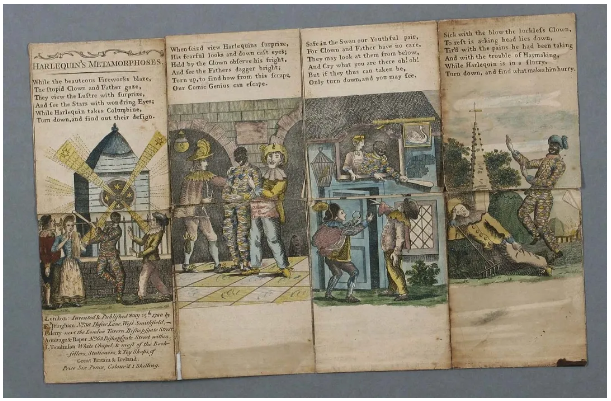 HARLEQUIN'S METAMORPHOSES.
While the beauteous Fireworks blaze,
The Stupid Clown and Father gaze,
They view the Lustre with surprize,
And see the Stars with wond'ring Eyes;
While Harlequin takes Columbine,
Turn down, and find out their design.
London. Invented & Published
Street
near the London Tavern Bishopsgate Street
& Roper No. Bishopsgate Street within
White Chapel & most of the Book-
sellers, Stationers, & Toy Shops, of
Great Britain & Ireland.
Price Six Pence, Colour'd 1 Shilling.
Whereforad view Harlequins surprize,
His fearful looks and down cast eyes;
Held by the Clown observe his fright,
And see the Fathers dagger bright;
Turn up, to find how from this scrape,
Our Comic Genius can escape.
Safe in the Swan our Youthful pair,
For Clown and Father have no care,
They may look at them from below,
And Cry what you are there oh! oh!
But if they thus can taken be,
Only turn down, and you may see.
Sick with the blow the luckless Clown,
To rest is aking head lies down,
Tir'd with the pains he had been taking
And with the trouble of Haymaking,
While Harlequin is in a flurry,
Turn down, and find what makes him hurry.